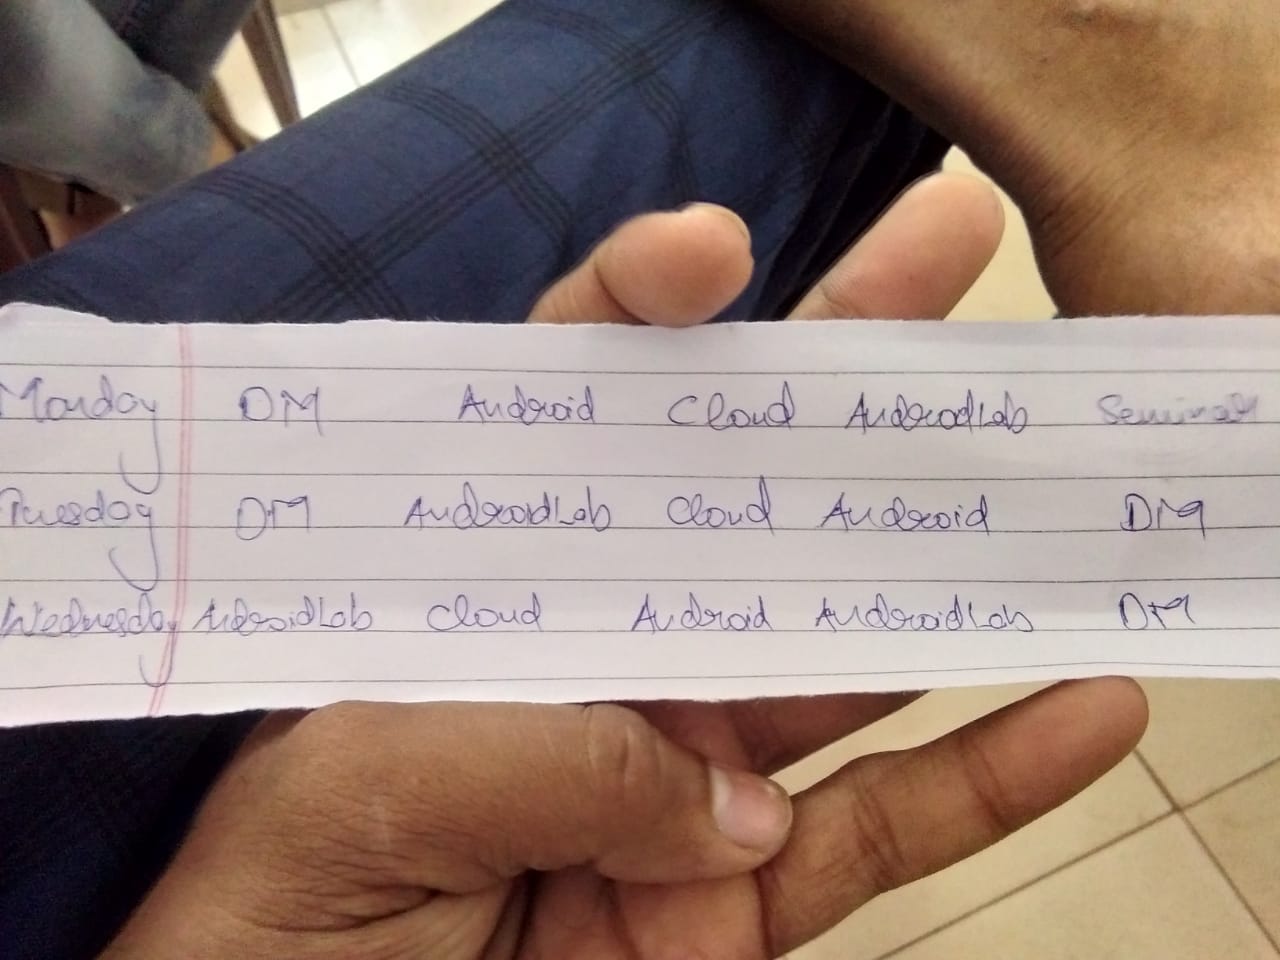 Monday DM Android Cloud AndroidLab Seminar
Tuesday DM AndroidLab Cloud Android DM
Wednesday AndroidLab Cloud Android AndroidLab DM